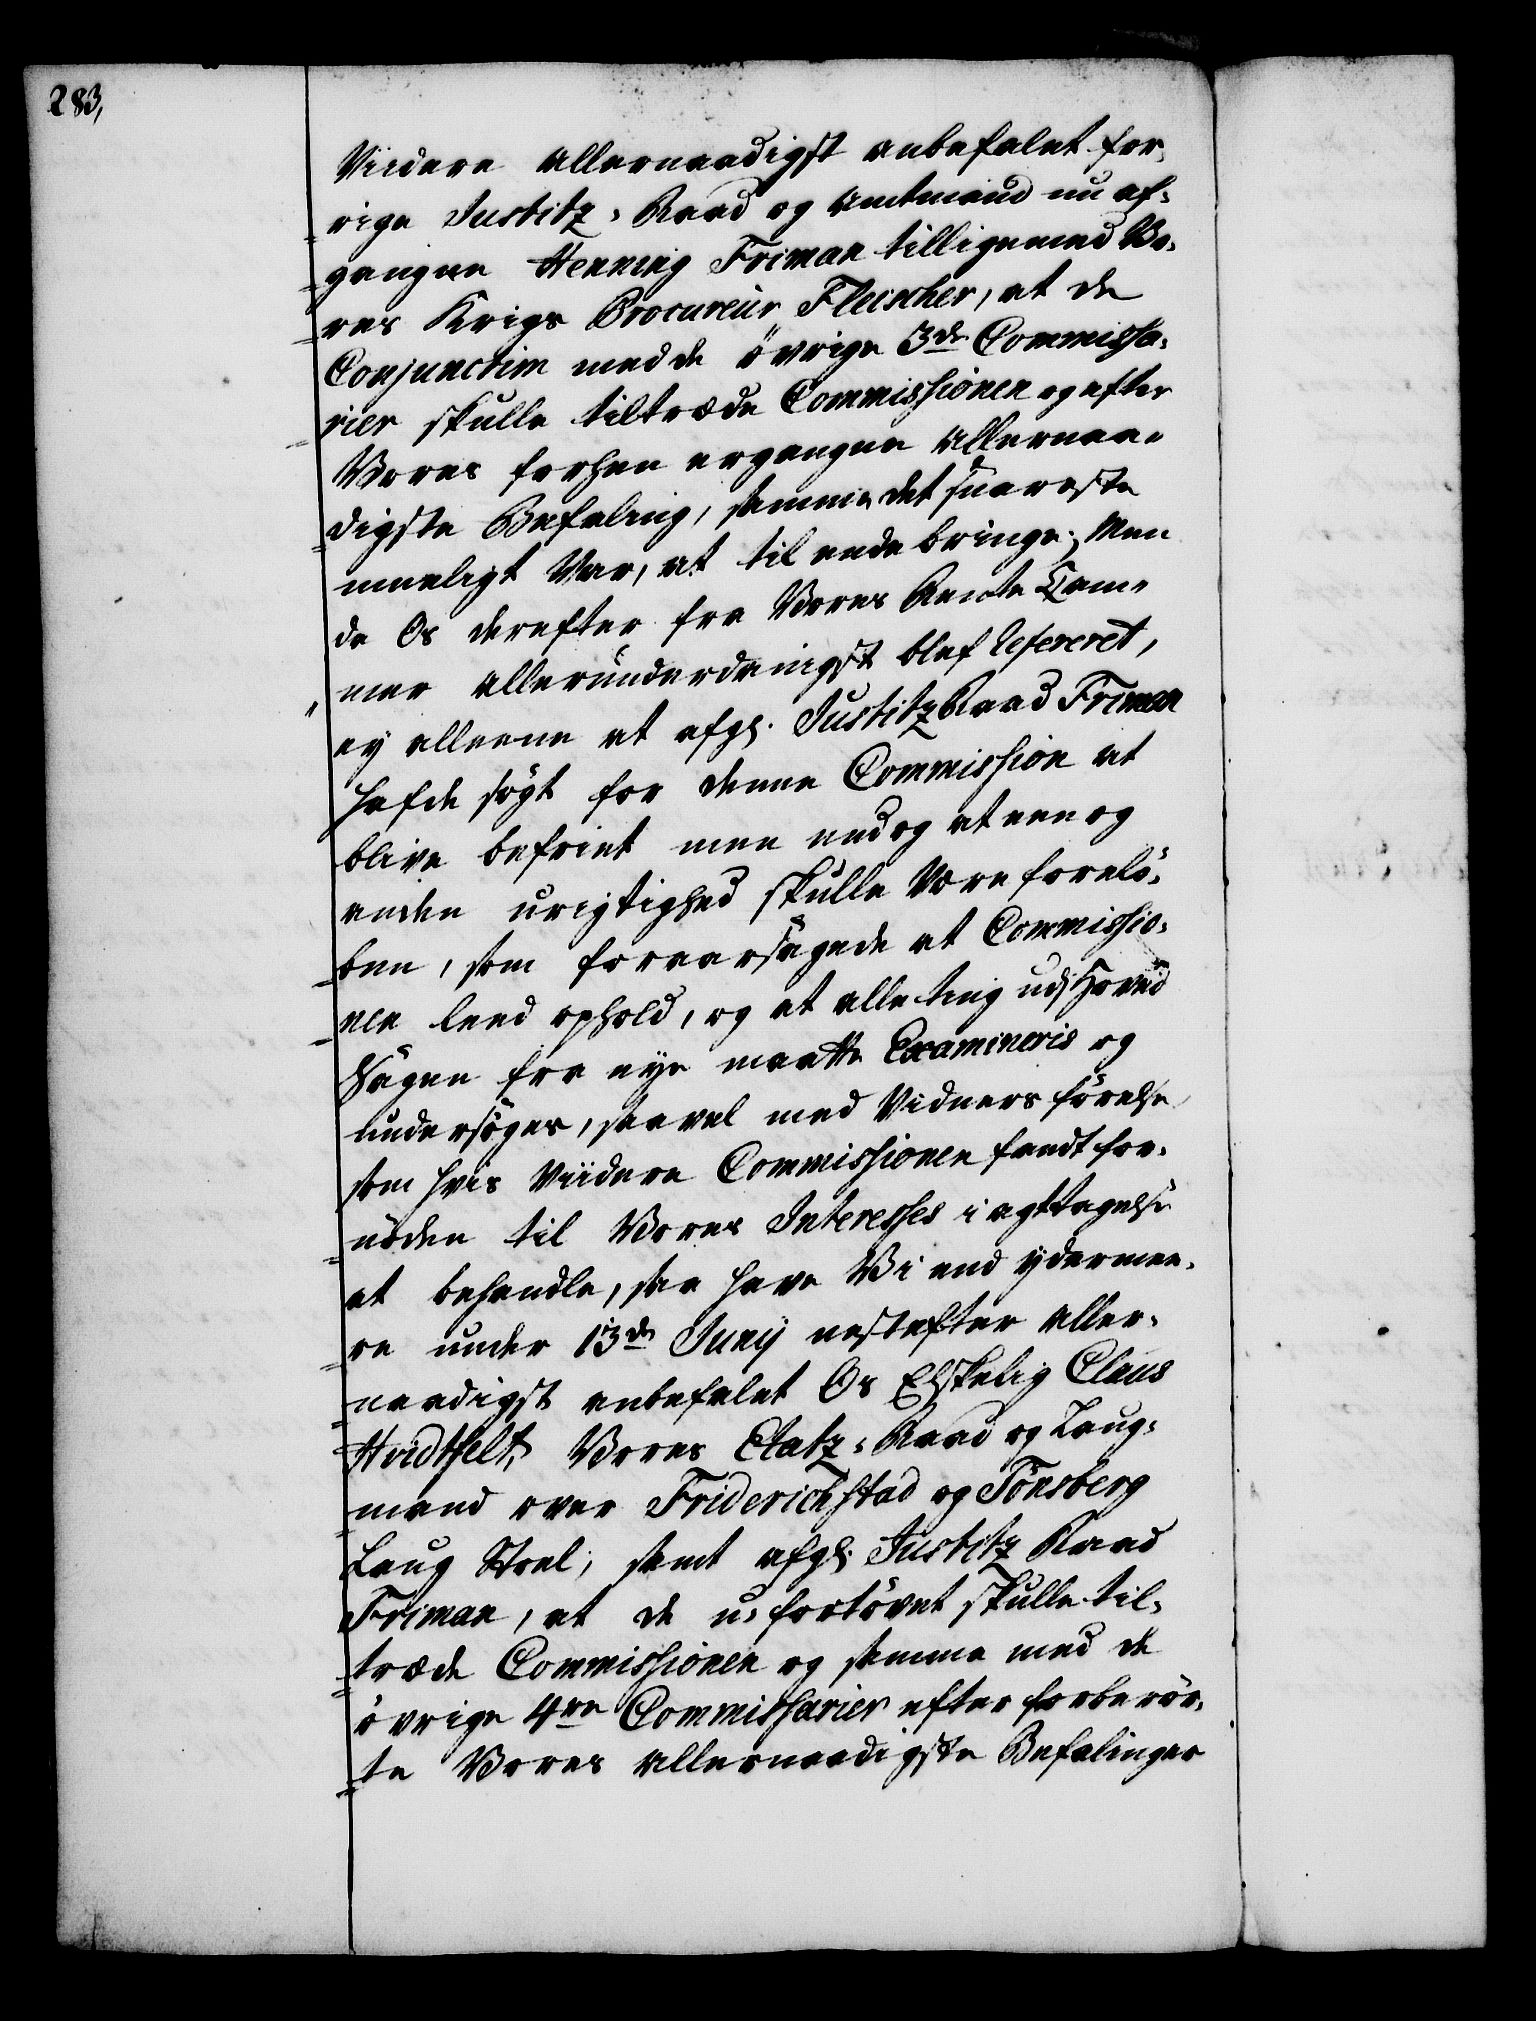 283,
Viidere allernaadigst anbefalet for-
rige Justitz-Raad og Amtmand nu af-
gangne Henning Friman tilligemed Vo-
res Krigs Procureur Fleischer, at de
Conjunctim med de övrige 3de Commissa-
rier skulle tiltræde Commissionen og efter
Vores forhen ergangne allernaa-
digste Befaling, samme det snareste
mueligt Var, at til ende bringe; Men
da Os derefter fra Vores Rente Cam-
mer allerunderdanigst blef refereret,
ey alleene at afgl. Justitz Raad Friman
hafde sögt for denne Commission at
blive befriet men endog at een og
anden urigtighed skulle Være forelö-
ben, som foraarsagede at Commissio-
nen leed ophold, og at alle ting udj Hoved
Sagen fra nye maatte Examineris og
undersöges, saavel med Vidners förelse
som hvis Viidere Commissionen fandt for-
nöden til Vores Interesses i agttagelse
at behandle, saa have Vi end ydermee-
re under 13de Junij nestefter aller-
naadigst anbefalet Os Elskelig Claus
Hvidtfelt, Vores Etatz-Raad og Laug-
mand over Friderichstad og Tönsberg
Laug Stoel, samt afgl. Justitz Raad
Friman, at de u-fortövet skulle til-
træde Commissionen og samme med de
övrige 4re Commissarier efter forberör-
te Vores allernaadigste Befalinger